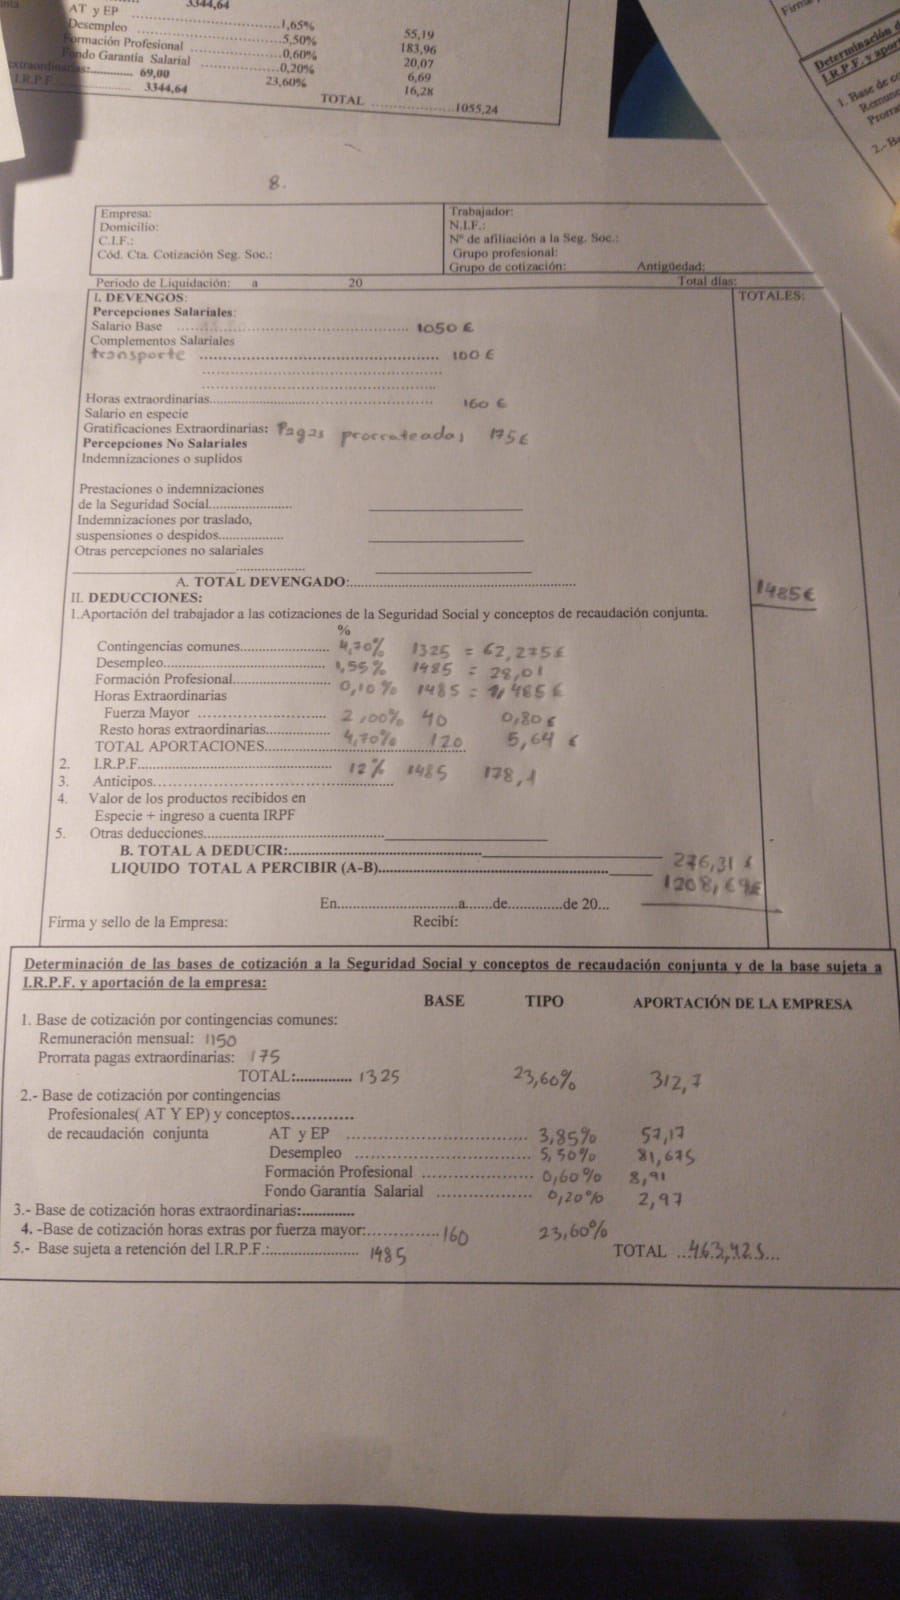 3344,64
AT y EP ..................1,65% 55,19
Desempleo ..................5,50% 183,96
Formación Profesional ..................0,60% 20,07
Fondo Garantía Salarial ..................0,20% 6,69
extraordinarias:............ 69,00 23,60% 16,28
I.R.P.F. .................. 3344,64
TOTAL ..................1055,24
Determinación d
I.R.P.F. y apor
1. Base de co
Remune
Prorra
2.-Ba
8.
Empresa: Trabajador:
Domicilio: N.I.F.:
C.I.F.: Nº de afiliación a la Seg. Soc.:
Cód. Cta. Cotización Seg. Soc.: Grupo profesional:
Grupo de cotización: Antigüedad:
Periodo de Liquidación: a 20 Total días:
I. DEVENGOS: TOTALES:
Percepciones Salariales:
Salario Base .................. 1050 €
Complementos Salariales
transporte .................. 100 €
Horas extraordinarias.................. 160 €
Salario en especie
Gratificaciones Extraordinarias: Pagas prorrateadas 175€
Percepciones No Salariales
Indemnizaciones o suplidos
Prestaciones o indemnizaciones
de la Seguridad Social..................
Indemnizaciones por traslado,
suspensiones o despidos..................
Otras percepciones no salariales
A. TOTAL DEVENGADO:.................. 1485€
II. DEDUCCIONES:
1.Aportación del trabajador a las cotizaciones de la Seguridad Social y conceptos de recaudación conjunta.
%
Contingencias comunes.................. 4,70% 1325 = 62,275€
Desempleo.................. 1,55% 1485 = 28,01
Formación Profesional.................. 0,10% 1485 = 1,485€
Horas Extraordinarias
Fuerza Mayor .................. 2,00% 40 0,80€
Resto horas extraordinarias.................. 4,70% 120 5,64 €
TOTAL APORTACIONES..................
2. I.R.P.F.................. 12% 1485 178,1
3. Anticipos..................
4. Valor de los productos recibidos en
Especie + ingreso a cuenta IRPF
5. Otras deducciones..................
B. TOTAL A DEDUCIR:.................. 276,31 €
LIQUIDO TOTAL A PERCIBIR (A-B).................. 1208,69€
En..................a......de............de 20...
Firma y sello de la Empresa: Recibí:
Determinación de las bases de cotización a la Seguridad Social y conceptos de recaudación conjunta y de la base sujeta a
I.R.P.F. y aportación de la empresa:
BASE TIPO APORTACIÓN DE LA EMPRESA
1. Base de cotización por contingencias comunes:
Remuneración mensual: 1150
Prorrata pagas extraordinarias: 175
TOTAL:.............. 1325 23,60% 312,7
2.- Base de cotización por contingencias
Profesionales( AT Y EP) y conceptos............
de recaudación conjunta AT y EP .................. 3,85% 57,17
Desempleo .................. 5,50% 81,675
Formación Profesional .................. 0,60% 8,91
Fondo Garantía Salarial .................. 0,20% 2,97
3.- Base de cotización horas extraordinarias:.............
4. -Base de cotización horas extras por fuerza mayor:............... 160 23,60%
5.- Base sujeta a retención del I.R.P.F.:.................. 1485 TOTAL ...463,425...